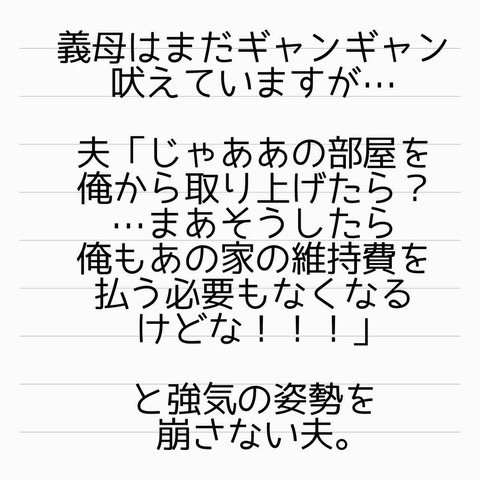 義母はまだギャンギャン
吠えていますが…
夫「じゃああの部屋を
俺から取り上げたら？
…まあそうしたら
俺もあの家の維持費を
払う必要もなくなる
けどな！！！」
と強気の姿勢を
崩さない夫。